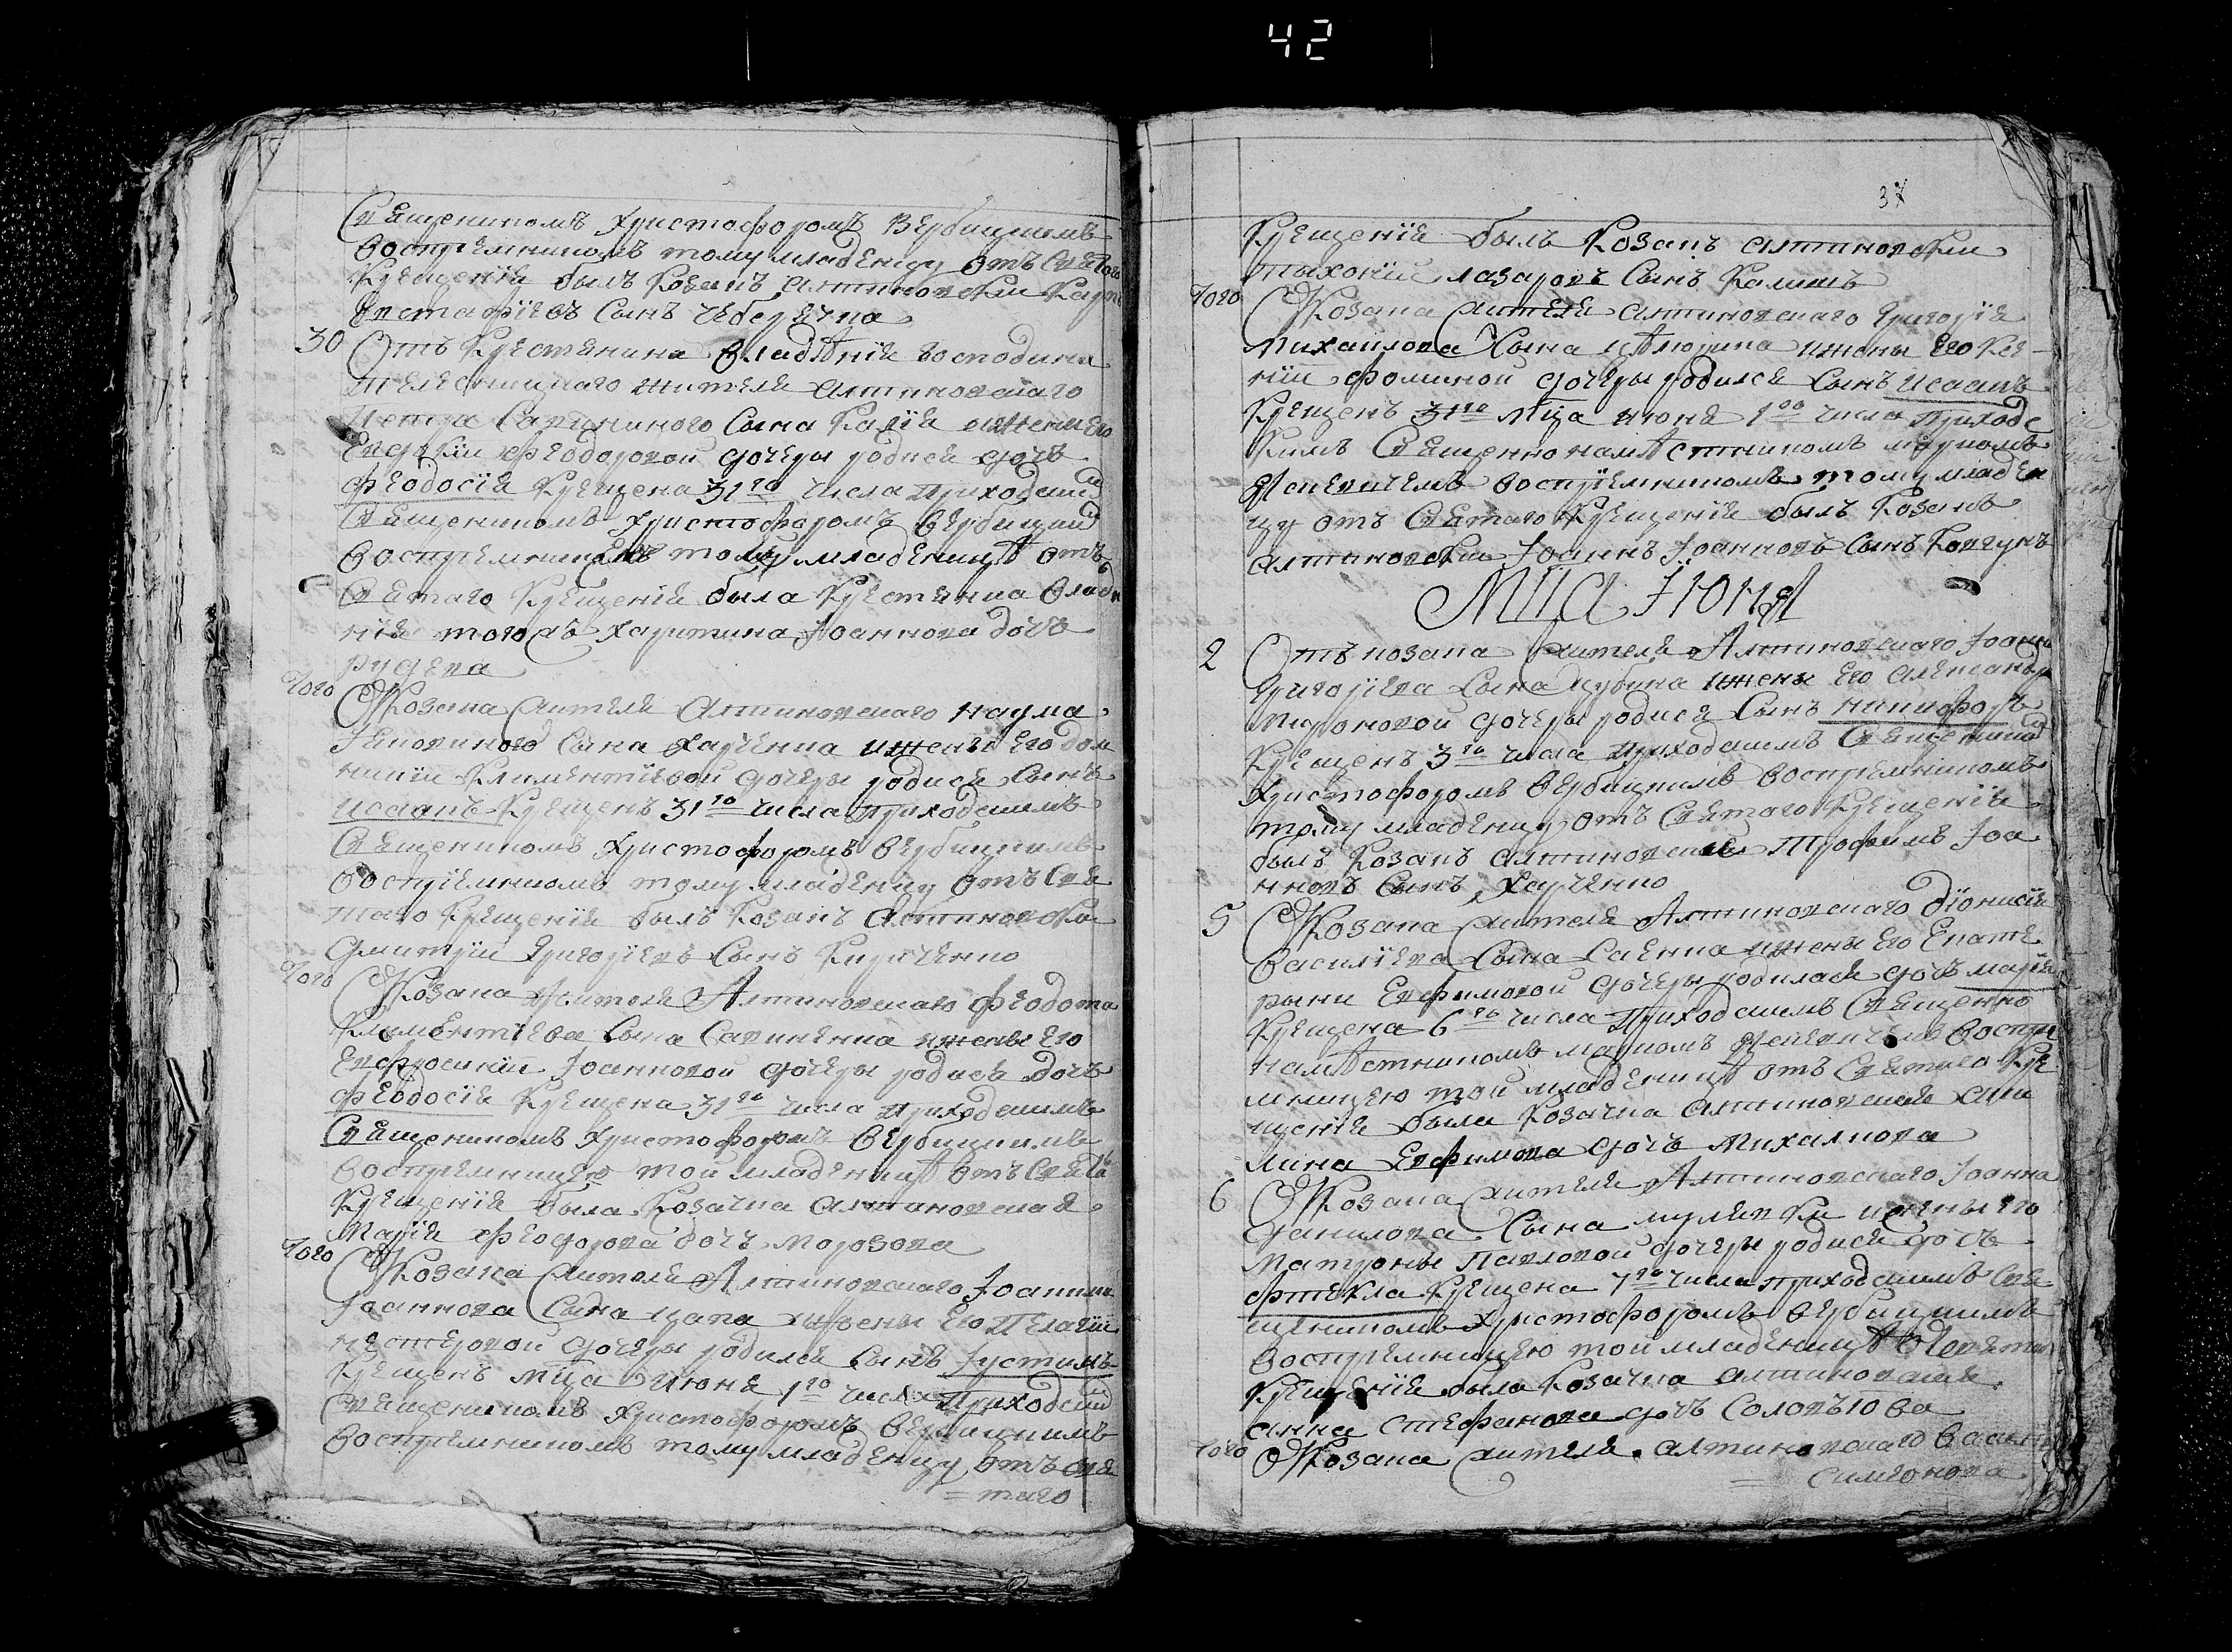 42
Священникомъ Христофоромъ Вербицкимъ
Воспріемникомъ тому младенцу отъ Святого
Крещенія былъ Козакъ Алтиновски
Евстафіевъ Сынъ
30 Отъ Крестянина владѣнія Господина
жителя Алтиновскаго
Петра Сына ижены Его
Евдокіи Феодоровой дочеры родися дочъ
Феодосія Крещена 31го числа Приходским
Священникомъ Христофоромъ Вербицким
Воспріемницею тому младеницѣ отъ
Святаго Крещенія была Крестянка Владѣ
нія того жъ Харитина Іоаннова дочъ
Того
Отъ Козака жителя Алтиновскаго Наума
Сына Харченка ижены Его Дом
никіи Климентіевой дочеры родися Сынъ
Исаакъ Крещенъ 31го числа Приходскимъ
Священникомъ Христофоромъ Вербицкимъ
Воспріемникомъ тому младенцу отъ Свя
таго Крещенія былъ Козакъ Алтиновски
Дмитрій Григоріевъ Сынъ Кириченко
Того
Отъ Козака жителя Алтиновскаго Феодота
Климентіева Сына Савиненка ижены Его
Евфросиніи Іоанновой дочеры родися дочъ
Феодосія Крещена 31го числа Приходскимъ
Священникомъ Христофоромъ Вербицкимъ
Воспріемницею той младеницѣ отъ Святаго
Крещенія была Козачка Алтиновская
Марія Феодорова дочъ Морозова
Того
Отъ Козака жителя Алтиновскаго Іоанна
Іоаннова Сына Цапа ижены Его Пелагіи
Нестеровой дочеры родился Сынъ Іустинъ
Крещенъ мца Июня 1го числа Приходским
Священникомъ Христофоромъ Вербицкимъ
Воспріемникомъ тому младенцу отъ Свя
= таго
37
Крещенія былъ Козакъ Алтиновски
Тыхоній Лазаровъ Сынъ
Того
Отъ Козака жителя Алтиновскаго Григорія
Михайлова Сына ижены Его Ксе-
ніи Фоминой дочеры родился Сынъ Исаакъ
Крещенъ 31го Мца Июня 1го числа Приходс
кимъ Священнонамѣстникомъ Маркомъ
Воспріемникомъ тому младен
цу отъ Святаго Крещенія былъ Козакъ
Алтиновски Іоаннъ Іоанновъ Сынъ Ковтунъ
Мца Іюня
2 Отъ козака жителя Алтиновскаго Іоанна
Григоріева Сына ижены Его Александры
Мироновой дочеры родися Сынъ Никифоръ
Крещенъ 3го числа Приходскимъ Священником
Христофоромъ Вербицкимъ Воспріемникомъ
тому младенцу отъ Святого Крещенія
былъ Козакъ Алтиновски Трофимъ Іоа
нновъ Сынъ Харченко
5 Отъ Козака жителя Алтиновскаго Діонисія
Василіева Сына Саенка ижены Его Екате
рыни Евфимовой дочеры родилася дочъ Марія
Крещена 6го числа Приходскимъ Священно
намѣстникомъ Маркомъ Воспрі
емницею той младеницѣ отъ Святаго Кре
щенія была Козачка Алтиновская Аки
лина Евфимова дочъ Михалкова
6 Отъ Козака жителя Алтиновскаго Іоанна
Данилова Сына ижены его
Матроны Павловой дочеры родися дочъ
Фтекла Крещена 7го числа Приходскимъ Свя
щеникомъ Христофоромъ Вербицкимъ
Воспріемницею той младеницѣ от Святаго
Крещенія была Козачка Алтиновская
Анна Стефанова дочъ Соловъюва
Того Отъ Козака жителя Алтиновскаго
= Симеонова